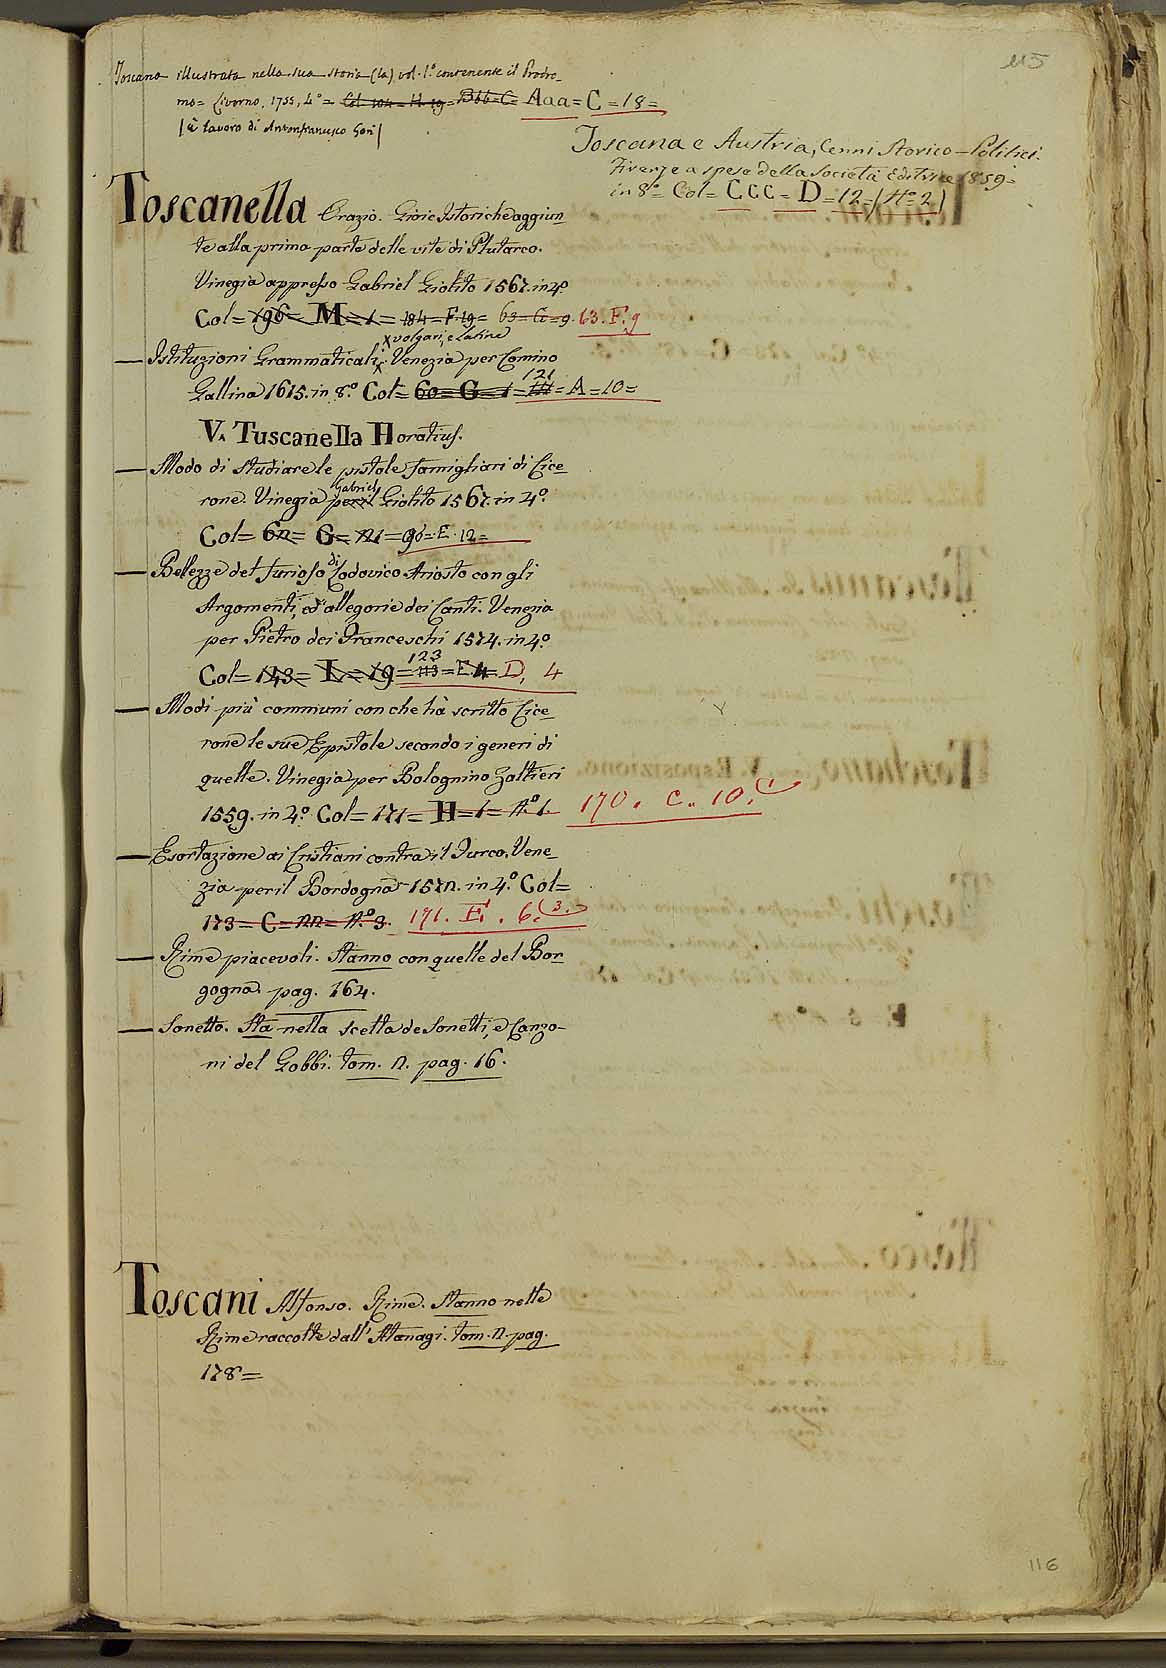 115
Toscana illustrata nella sua storia (la) vol. 1.° contenente il Prodro-
mo = Livorno, 1755, 4° = Col. 104 = H. 19 = Bbb = C = Aaa = C = 18 =
| È lavoro di Antonfrancesco Gori |
Toscana e Austria, Cenni Storico-Politici.
Firenze a spese della Società Editrice 1859 =
in 8° = Col = CCC = D = 12 = (N° 2)
Toscanella Orazio. Gioie Istoriche aggiun
te alla prima parte delle vite di Plutarco.
Vinegia appresso Gabriel Giolito 1567. in 4.°
Col = 196 = M = 1 = 184 = F. 19 = 63 = C = 9. 63. F. 9
x volgari, e latine
— Istituzioni Grammaticali x Venezia per Comino
121
Gallina 1615. in 8.° Col = 60 = G = 1 = 111 = A = 10 =
V. Tuscanella Horatius.
— Modo di studiare le pistole famigliari di Cice
Gabriel
rone. Vinegia per il Giolito 1567. in 4.°
Col = 62 = G = 21 = 96 = E. 12 =
— Bellezze del furioso di Lodovico Ariosto con gli
Argomenti, ed allegorie dei Canti. Venezia
per Pietro dei Franceschi 1574. in 4.°
123
Col = 143 = L = 19 = 113 = E. 4 = D, 4
— Modi più communi con che hà scritto Cice
rone le sue Epistole secondo i generi di
quelle. Vinegia per Bolognino Zaltieri
1559. in 4.° Col = 171 = H = 1 = N.° 1. 170. C. 10. (1
— Esortazione ai Cristiani contra il Turco. Vene
zia per il Bordogna 1572. in 4.° Col =
173 = C = 22 = N.° 3. 171. E. 6. (3.
— Rime piacevoli. Stanno con quelle del Bor
gogna. pag. 164.
— Sonetto. Sta nella scelta de Sonetti, e Canzo-
ni del Gobbi. tom. 2. pag. 16.
Toscani Alfonso. Rime. Stanno nelle
Rime raccolte dall' Atanagi. tom. 2. pag.
178 =
116